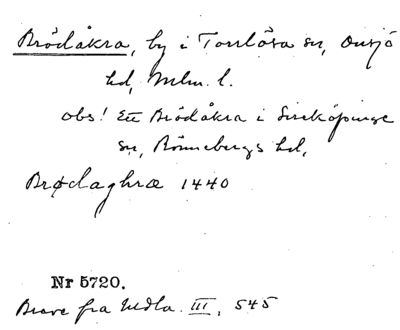 Brödåkra, by i Torrlösa sn, Onsjö
hd, Mlm. l.
obs! Ett Brödåkra i Sireköpinge
sn, Rönnebergs hd,
Brødaghræ 1440
Nr 5720.
Breve fra Midla. III, 545